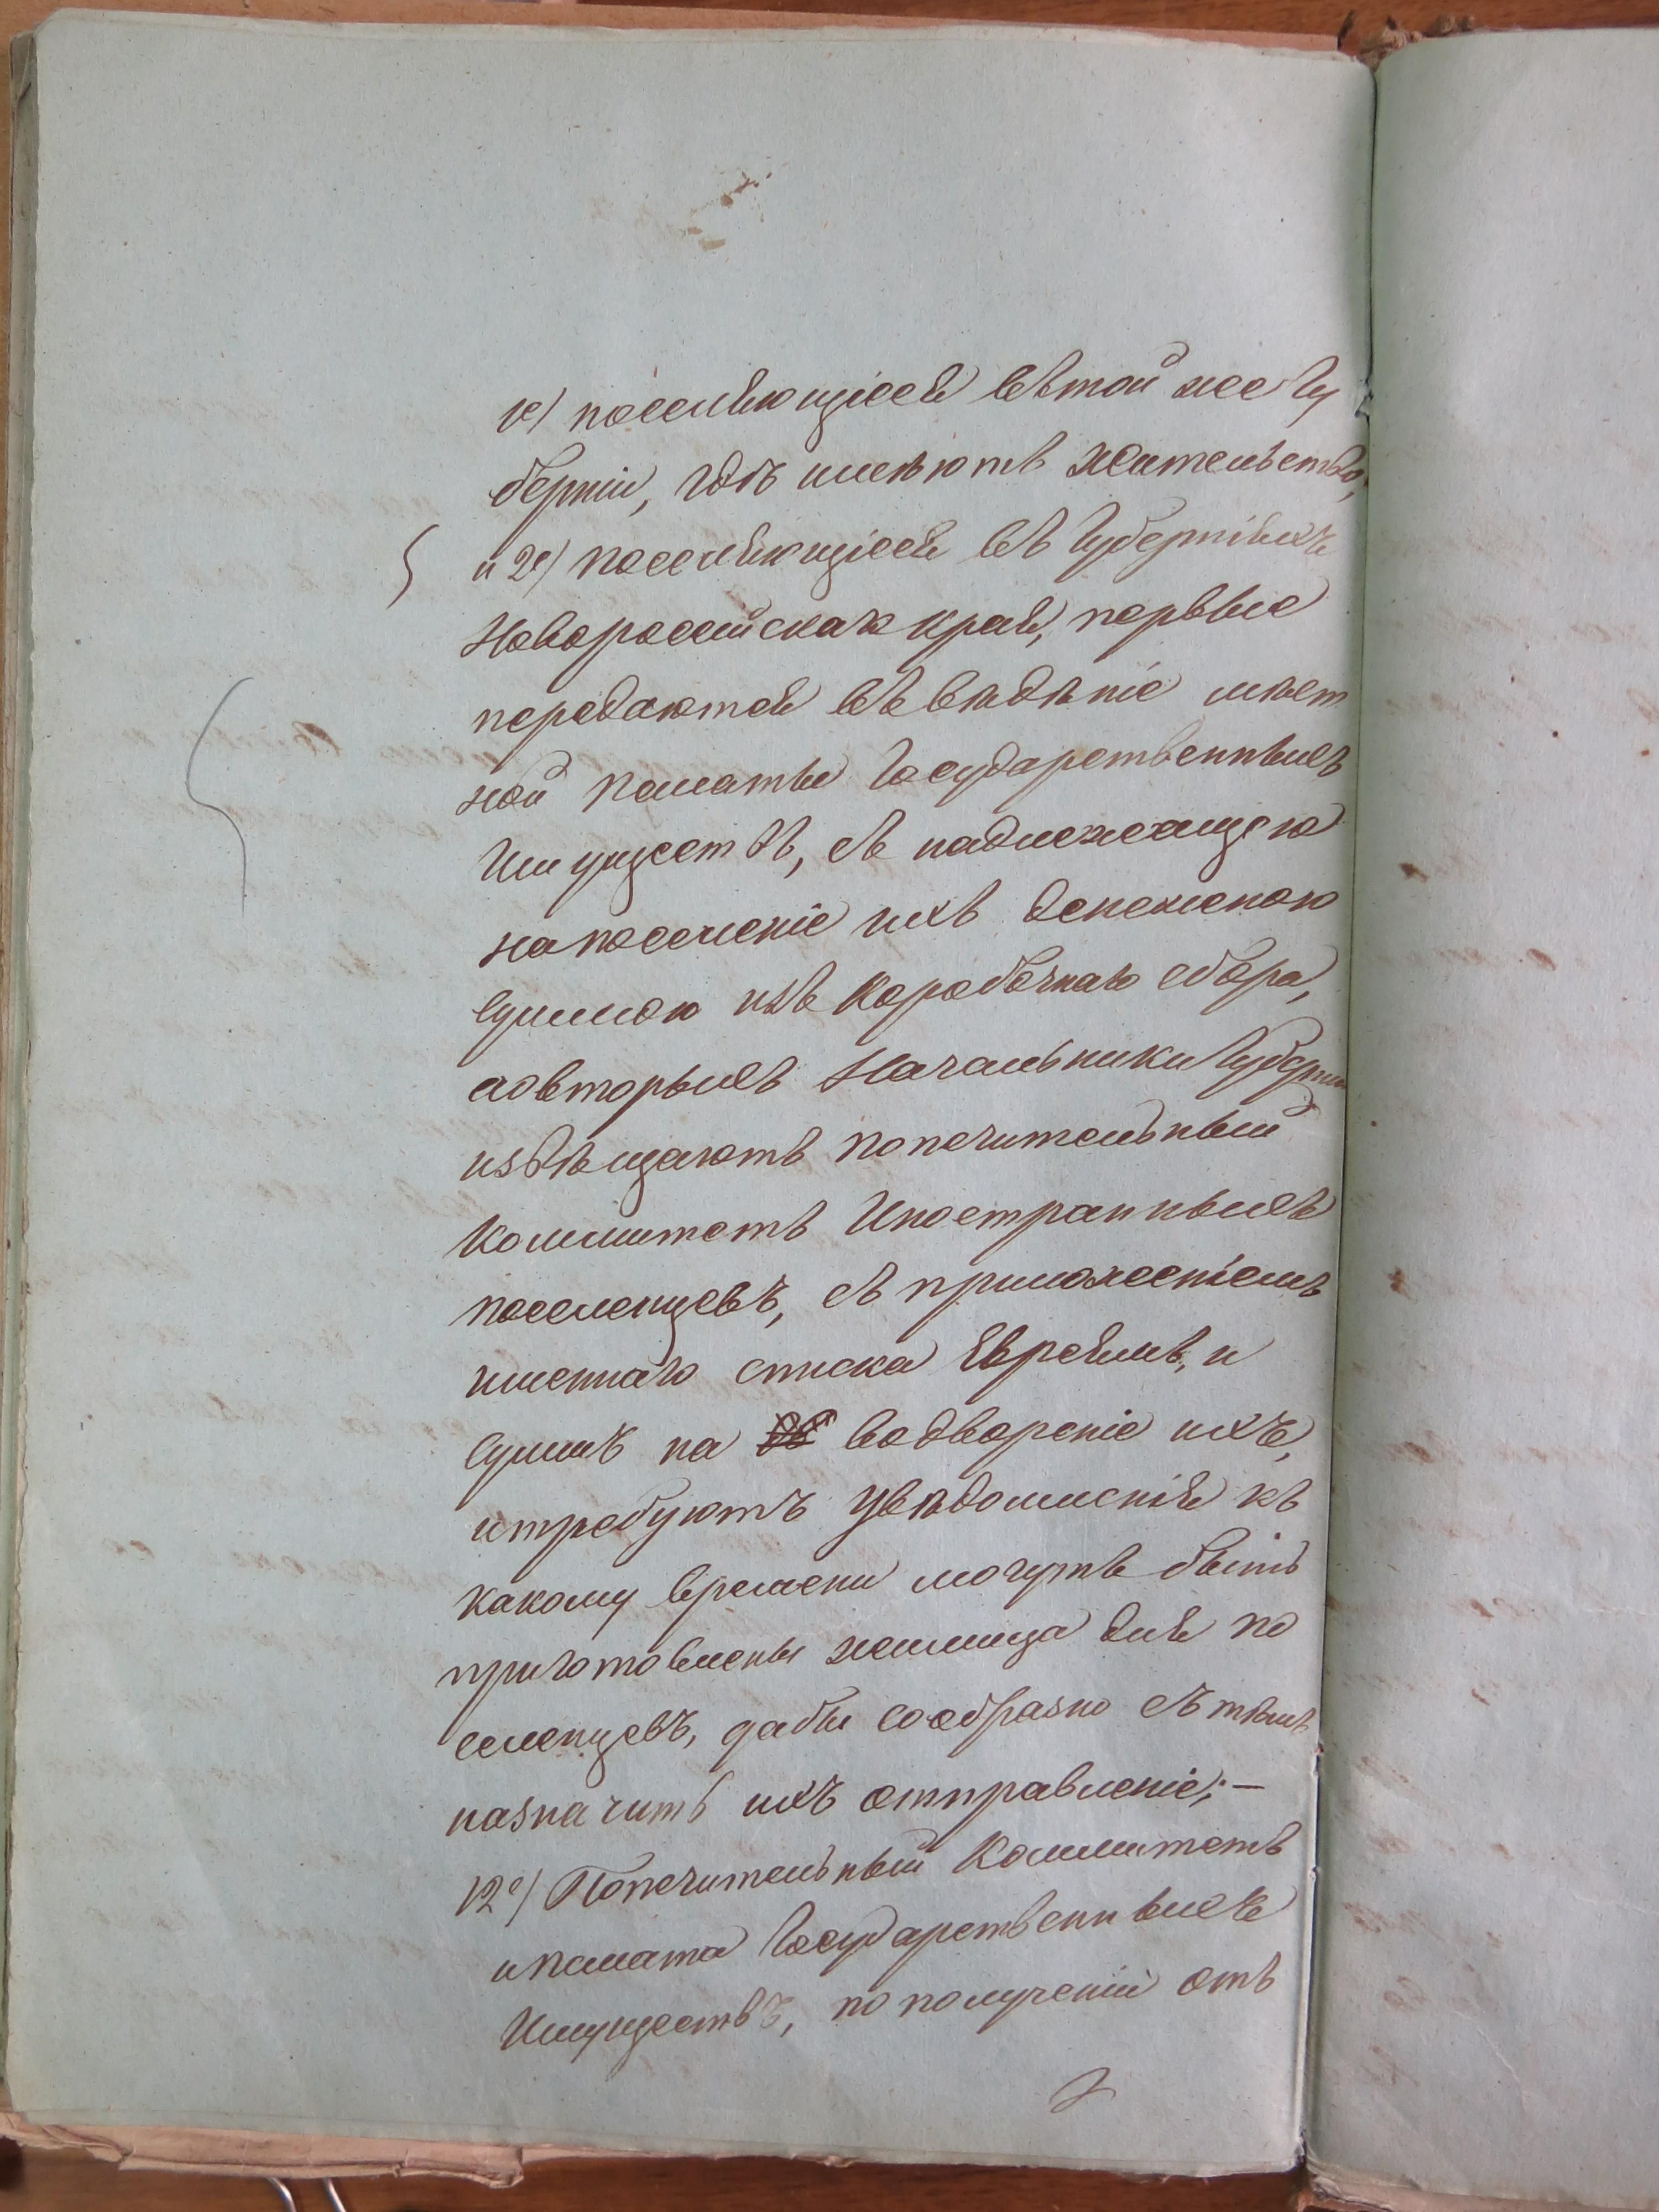 1е) поселяющіеся въ той же Гу
берніи, гдѣ имѣютъ жительство,
и 2е) поселяющіеся въ Губерніяхъ
Новороссійскаго края, первые
передаются въ вѣдѣніе мѣст
ной палаты Государственныхъ
Имуществъ, съ надлежащею
на поселеніе ихъ денежною
суммою изъ коробочнаго сбора,
а о вторыхъ Начальники Губерніи
извѣщаютъ попечительный
Коммитетъ Иностранныхъ
поселенцевъ, съ приложеніемъ
именнаго списка Евреямъ, и
суммъ на водвореніе ихъ,
и требуютъ увѣдомленія къ
какому времени могутъ быть
приготовлены жилища для по
селенцевъ, дабы сообразно съ тѣмъ
назначить ихъ отправленіе;—
12е) Попечительный Коммитетъ
и палата Государственныхъ
Имуществъ, по полученіи отъ